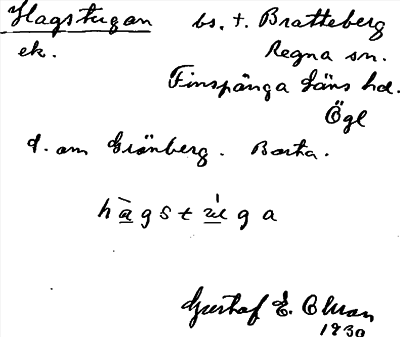 Hagstugan bs. t. Bratteberg
ek. Regna sn.
Finspånga läns hd.
Ögl
d. om Grönberg. Borta.
hàgstúga
Gustaf E. Olman
1930